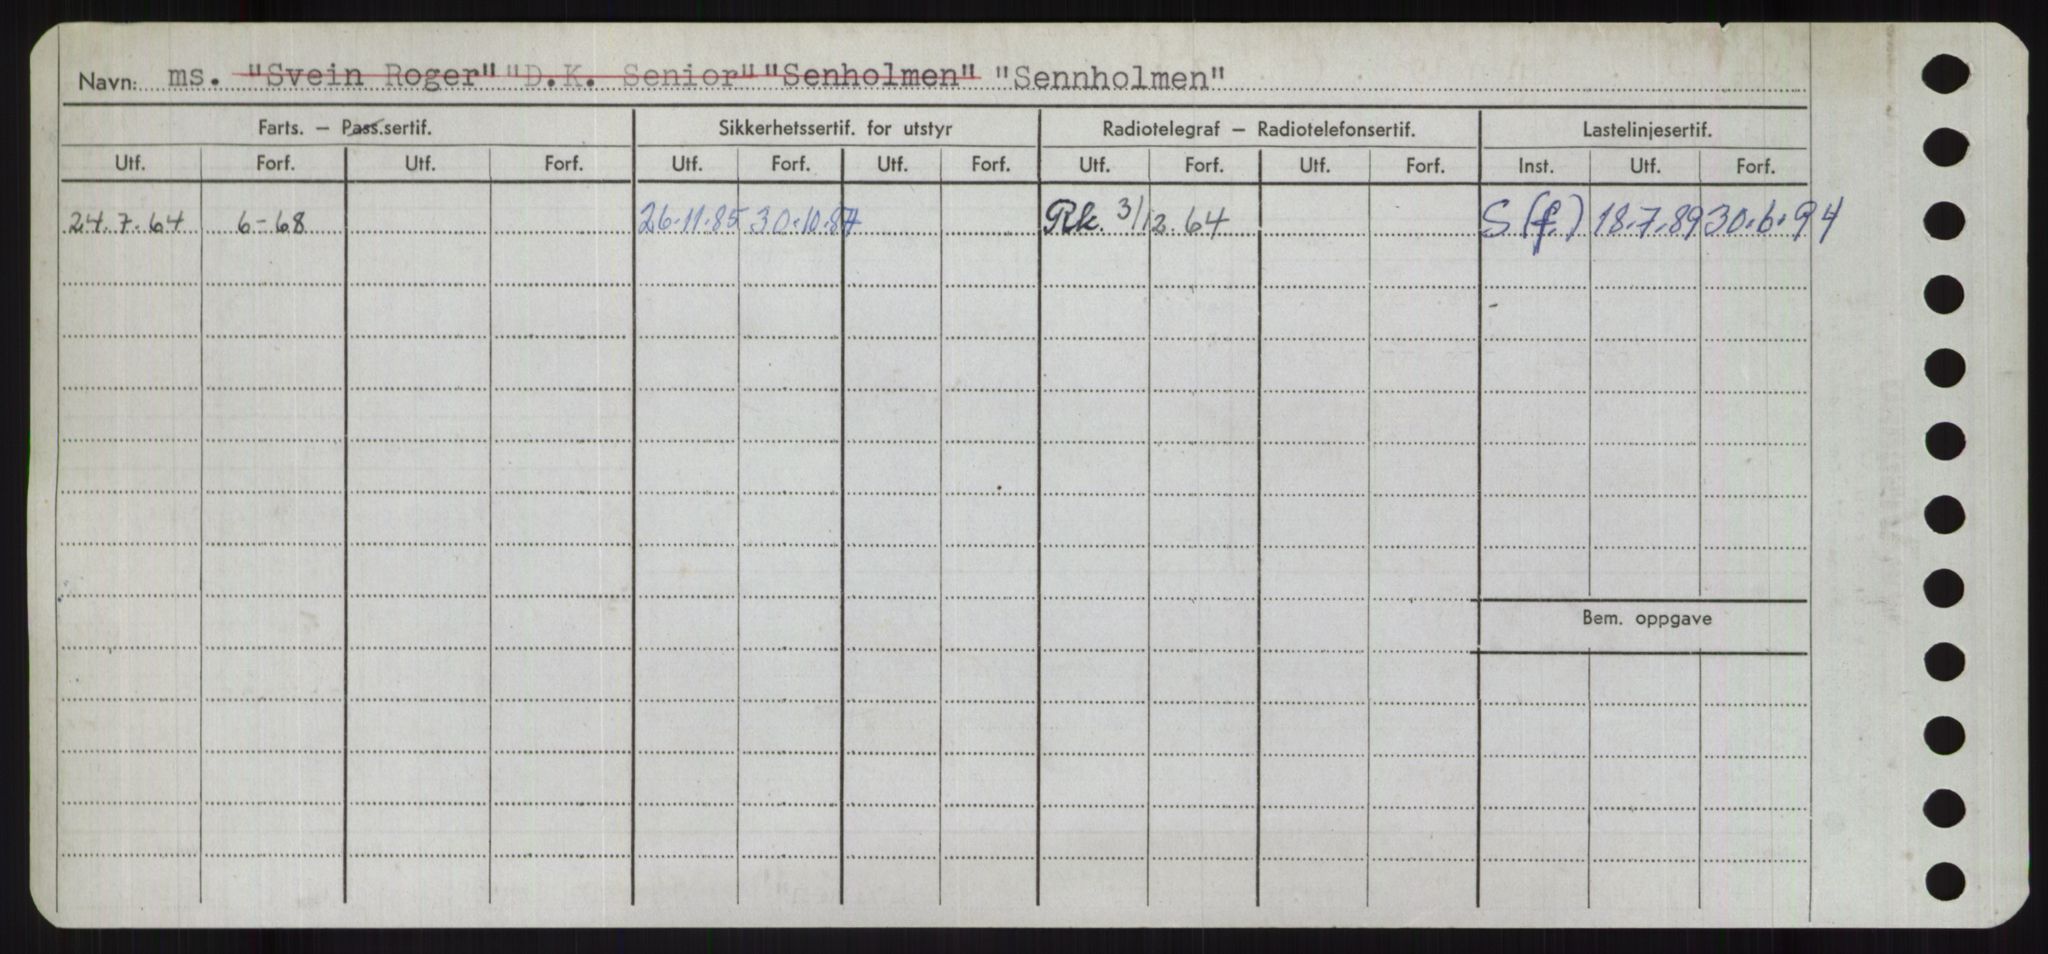 Navn: ms. "Svein Roger" "D.K. Senior" "Senholmen" "Sennholmen"
Farts. – Pass.sertif. Sikkerhetssertif. for utstyr Radiotelegraf – Radiotelefonsertif. Lastelinjesertif.
Utf. Forf. Utf. Forf. Utf. Forf. Utf. Forf. Utf. Forf. Utf. Forf. Inst. Utf. Forf.
24.7.64 6-68 26.11.85 30.10.87 Rk. 3/12.64 S (f.) 18.7.89 30.6.94
Bem. oppgave